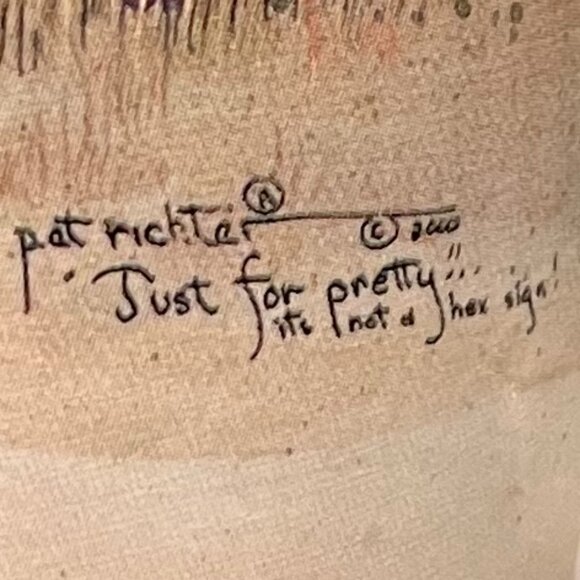 pat richter Ⓡ © 2000
"Just for pretty"...
its not a hex sign!